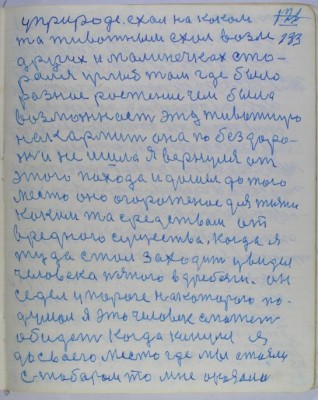 у природе. ехал на каком
та животным ехал возле 133
других и малинечках ста-
рался или там где было
разное растение чем была
возможност эту животную
накармит она по бездоро-
жи не шила я вернулся от
этого похода и дошел до того
место оно огорожоное для
каким та средством от
вредного существа. Когда я
туда стал заходит увидел
человека пяного вдребязи. он
седел у пороге на которого по-
думал я это человек сможет
обидет Когда кинулся я
до своего место где мы стояли
с табаром то мне сказали